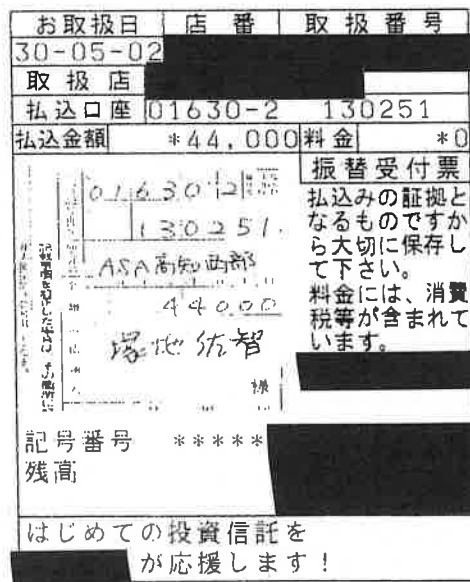 お取扱日 店番 取扱番号
30-05-02
取扱店
払込口座 01630-2 130251
払込金額 *44,000 料金 *0
振替受付票
払込みの証拠と
なるものですか
ら大切に保存し
て下さい。
料金には、消費
税等が含まれて
います。
01630 2
130251.
ASA高知西部
44000
塚地佐智
様
記号番号 *****
残高
はじめての投資信託を
が応援します!